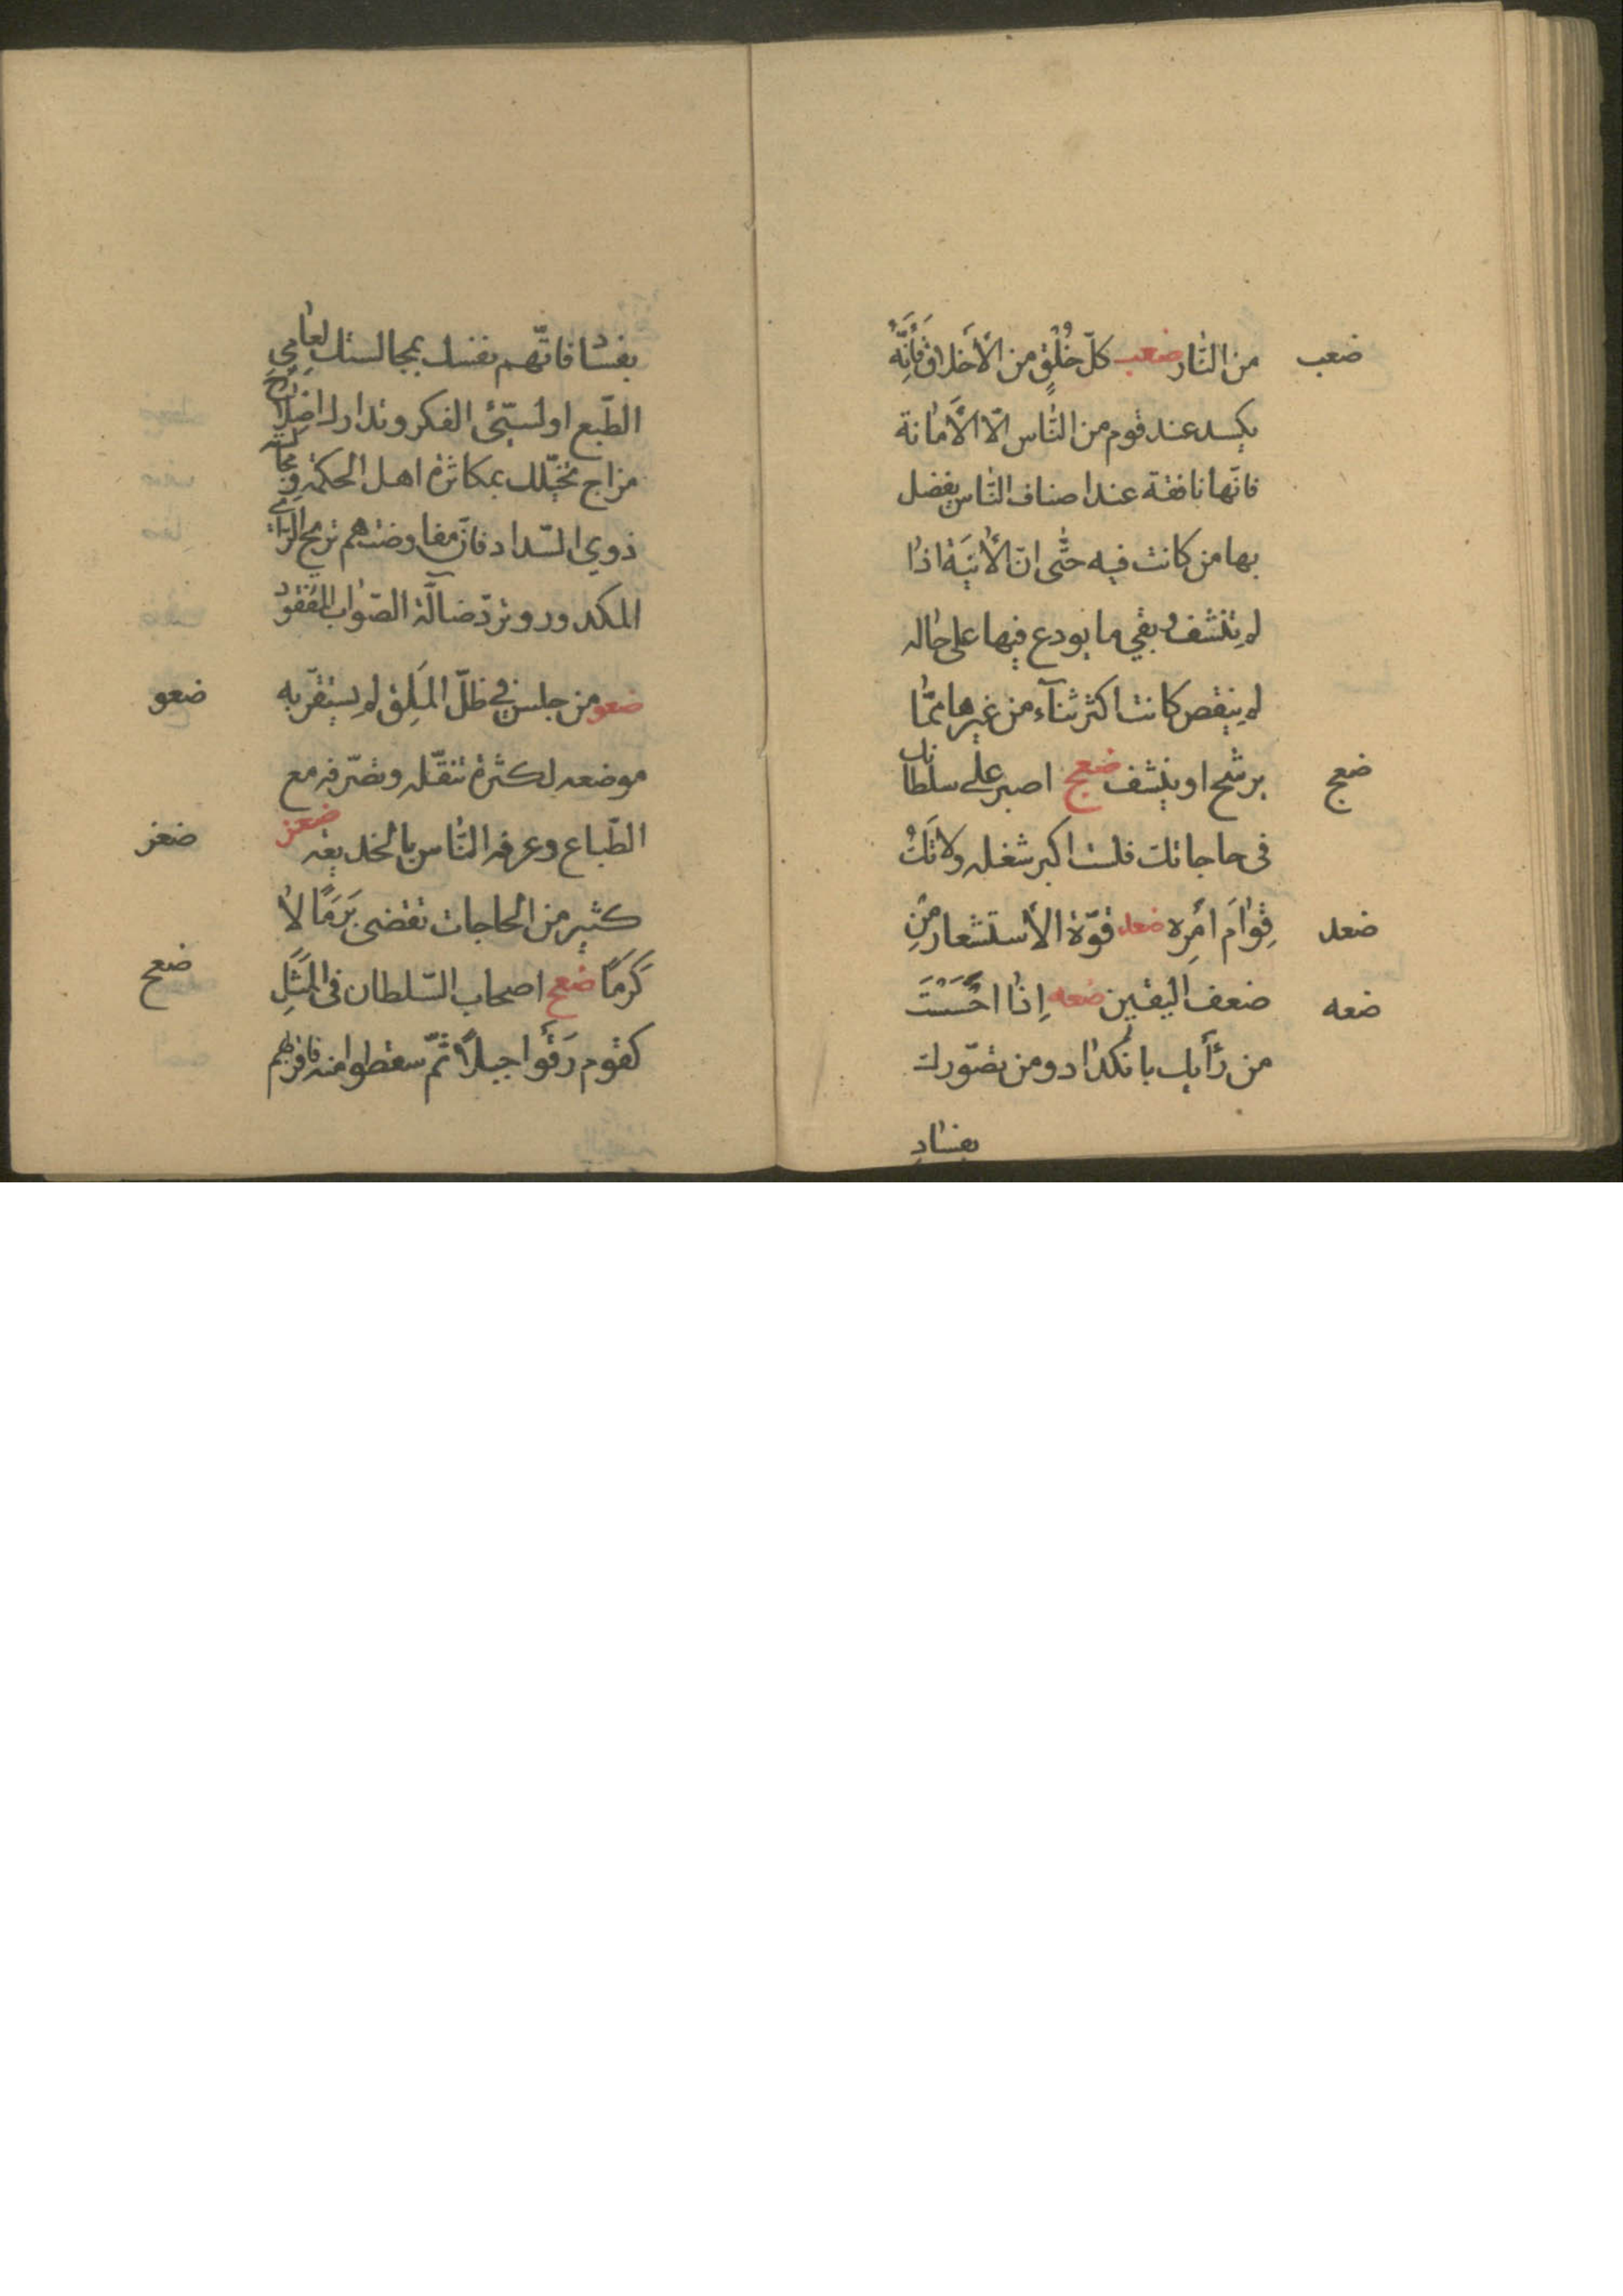 ضعب
من النار ضعب كلّ خُلُقٍ من الأخلاق فَأِنَّهُ
يكسد عند قوم من النّاس الّا الأمانة
فانّها نافقة عند اصناف النّاس يفضل
بها من كانت فيه حتّى انّ الأنيَة اذا
لم تنشف وبقي ما يودع فيها على حاله
لم ينقص كانت اكثر ثناءً من غيرها ممّا
ضعج
يرشح او ينشف ضعج اصبر على سلطانك
فى حاجاتك فلست اكبر شغله ولا بك
ضعد
قِوامَ امْرِه ضعد قوّة الأستشعار مِن
ضعه
ضعف اليقين ضعه اِذا احسَسْتَ
من رَأيك باكداد ومن تصوّرك
بفساد
بفساد فاتّهم نفسك بمجالستك لعامي
الطّبع او لسيّئ الفكر وتدارك اصلاح
مزاج تخيّلك بمكاثرة اهل الحكمة ومجالسة
ذوي السّداد فانّ مفاوضتهم تريح الرأي
المكدور وتردّ ضالّة الصّواب المفقود
ضعو
ضعو من جلس في ظلّ المَلِق لم يستقرّ به
موضعه لكثرة تنقّله وتصرّفه مع
ضعز
الطّباع وعرفه النّاس بالخديعة ضعز
كثير من الحاجات تقضى بَرَمًا لا
ضعح
كَرَمًا ضعح اصحاب السّلطان فى المَثَلِ
كقوم رَقَوا جبلاً ثمّ سقطوا منه فاقربهم